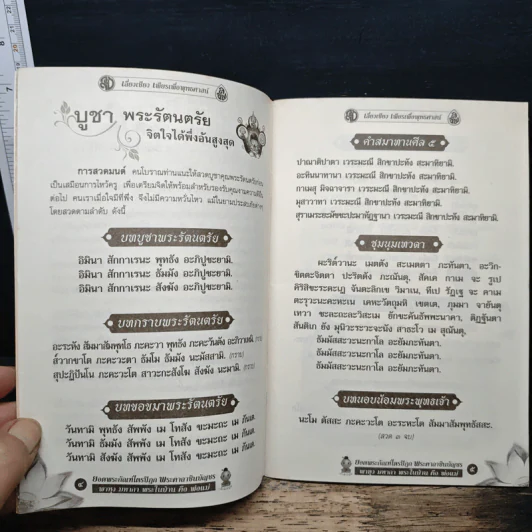 เลี่ยงเชียง เพียรเพื่อพุทธศาสน์
บูชา พระรัตนตรัย
จิตใจได้พึ่งอันสูงสุด
การสวดมนต์ คนโบราณท่านแนะให้สวดบูชาคุณพระรัตนตรัยก่อน
เป็นเสมือนการไหว้ครู เพื่อเตรียมจิตให้พร้อมสำหรับรองรับคุณงามความดีอื่น
ต่อไป คนเราเมื่อใจมีที่พึ่ง จึงไม่มีความหวั่นไหว แม้ในยามประสบภัยต่างๆ
โดยสวดตามลำดับ ดังนี้
บทบูชาพระรัตนตรัย
อิมินา สักกาเรนะ พุทธัง อะภิปูชะยามิ.
อิมินา สักกาเรนะ ธัมมัง อะภิปูชะยามิ.
อิมินา สักกาเรนะ สังฆัง อะภิปูชะยามิ.
บทกราบพระรัตนตรัย
อะระหัง สัมมาสัมพุทโธ ภะคะวา พุทธัง ภะคะวันตัง อะภิวาเทมิ. (กราบ)
ส๎วากขาโต ภะคะวะตา ธัมโม ธัมมัง นะมัสสามิ. (กราบ)
สุปะฏิปันโน ภะคะวะโต สาวะกะสังโฆ สังฆัง นะมามิ. (กราบ)
บทขอขมาพระรัตนตรัย
วันทามิ พุทธัง สัพพัง เม โทสัง ขะมะถะ เม ภันเต.
วันทามิ ธัมมัง สัพพัง เม โทสัง ขะมะถะ เม ภันเต.
วันทามิ สังฆัง สัพพัง เม โทสัง ขะมะถะ เม ภันเต.
ยอดพระกัณฑ์ไตรปิฎก พระคาถาชินบัญชร
พาหุง มหากา พระในบ้าน คือ พ่อแม่
เลี่ยงเชียง เพียรเพื่อพุทธศาสน์
คำสมาทานศีล ๕
ปาณาติปาตา เวระมะณี สิกขาปะทัง สะมาทิยามิ.
อะทินนาทานา เวระมะณี สิกขาปะทัง สะมาทิยามิ.
กาเมสุ มิจฉาจารา เวระมะณี สิกขาปะทัง สะมาทิยามิ.
มุสาวาทา เวระมะณี สิกขาปะทัง สะมาทิยามิ.
สุราเมระยะมัชชะปะมาทัฏฐานา เวระมะณี สิกขาปะทัง สะมาทิยามิ.
ชุมนุมเทวดา
ผะริต๎วานะ เมตตัง สะเมตตา ภะทันตา, อะวิก-
ขิตตะจิตตา ปะริตตัง ภะณันตุ, สัคเค กาเม จะ รูเป
คิริสิขะระตะเฏ จันตะลิกเข วิมาเน, ทีเป รัฏเฐ จะ คาเม
ตะรุวะนะคะหะเน เคหะวัตถุมหิ เขตเต, ภุมมา จายันตุ
เทวา ชะละถะละวิสะเม ยักขะคันธัพพะนาคา, ติฏฐันตา
สันติเก ยัง มุนิวะระวะจะนัง สาธะโว เม สุณันตุ.
ธัมมัสสะวะนะกาโล อะยัมภะทันตา.
ธัมมัสสะวะนะกาโล อะยัมภะทันตา.
ธัมมัสสะวะนะกาโล อะยัมภะทันตา.
บทนอบน้อมพระพุทธเจ้า
นะโม ตัสสะ ภะคะวะโต อะระหะโต สัมมาสัมพุทธัสสะ.
(สวด ๓ จบ)
ยอดพระกัณฑ์ไตรปิฎก พระคาถาชินบัญชร
พาหุง มหากา พระในบ้าน คือ พ่อแม่